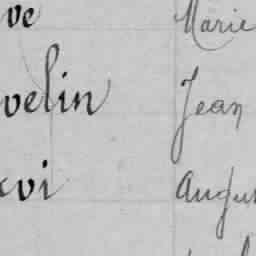 ve Marie
velin Jean
xvi Augu